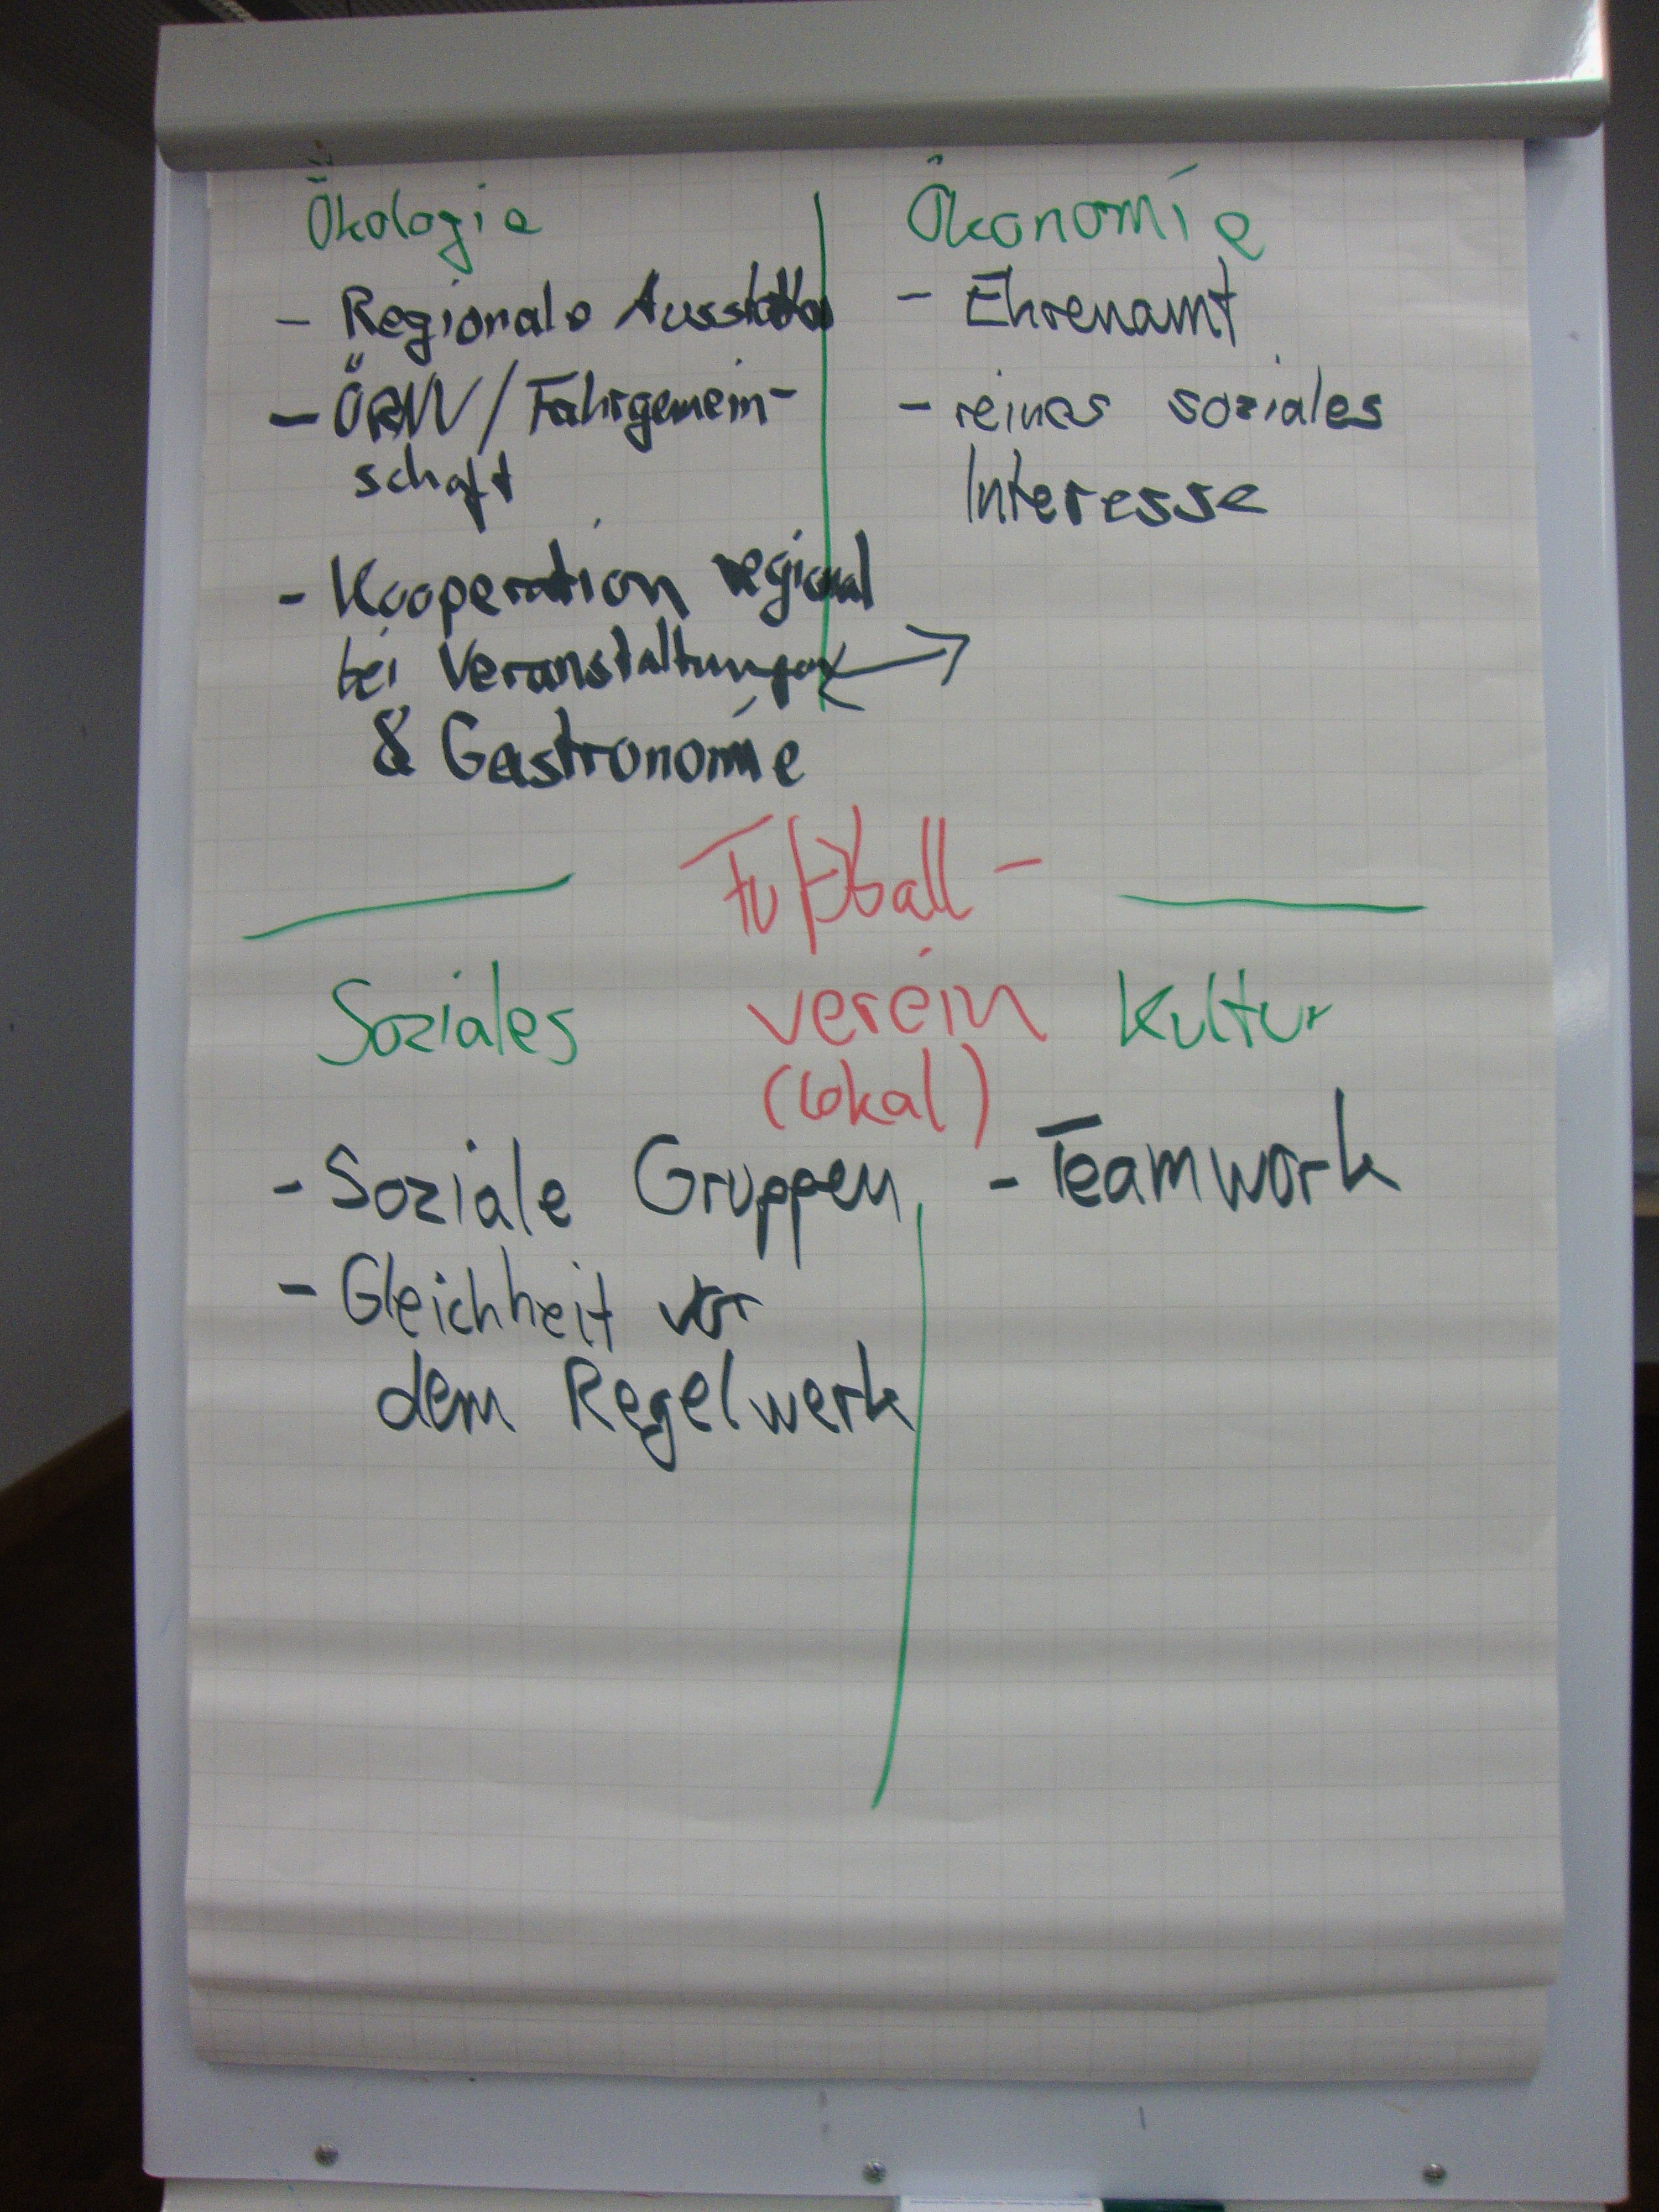 Ökologie
- Regionale Ausstatter
- ÖRNV/Fahrgemein-
schaft
- Kooperation regional
bei Veranstaltungen
& Gastronomie
Ökonomie
- Ehrenamt
- reines soziales
Interesse
Fußball-
verein
(lokal)
Soziales
- Soziale Gruppen
- Gleichheit vor
dem Regelwerk
Kultur
- Teamwork